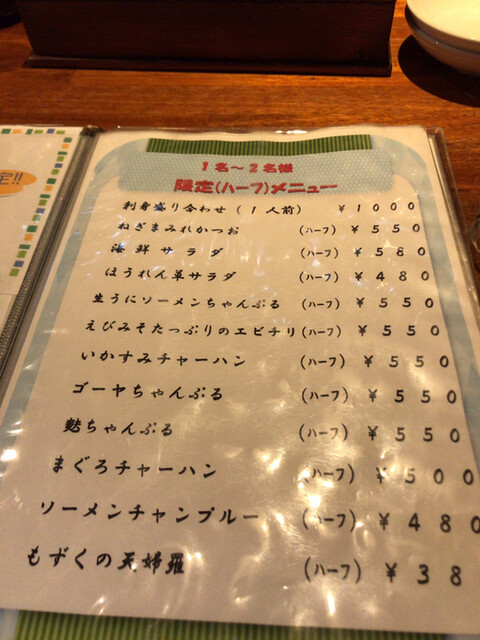 定!!
1名～2名様
限定(ハーフ)メニュー
刺身盛り合わせ (1人前) ¥1000
ねぎまみれかつお (ハーフ) ¥550
海鮮サラダ (ハーフ) ¥580
ほうれん草サラダ (ハーフ) ¥480
生うにソーメンちゃんぷる (ハーフ) ¥550
えびみそたっぷりのエビチリ (ハーフ) ¥550
いかすみチャーハン (ハーフ) ¥550
ゴーヤちゃんぷる (ハーフ) ¥550
麩ちゃんぷる (ハーフ) ¥550
まぐろチャーハン (ハーフ) ¥500
ソーメンチャンプルー (ハーフ) ¥480
もずくの天婦羅 (ハーフ) ¥38